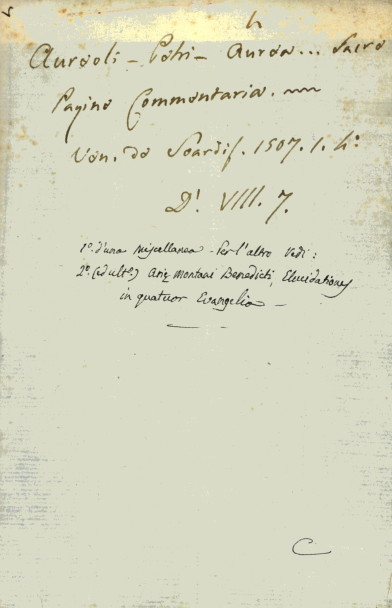 5
h
Aureoli - Petri - Aurea... Sacre
Pagine Commentaria.
Ven. de Soardis. 1507. 1. 4:
D! VIII. 7.
1º. d'una miscellanea - Per l'altro Vedi:
2º. (ed ultº.) Ariæ Montani Benedicti, Elucidationes
in quatuor Evangelia -
C